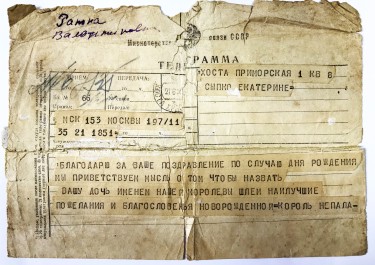 Министерство связи СССР
ТЕЛЕГРАММА
ПРИЕМ:
ПЕРЕДАЧА:
66
ХОСТА ПРИМОРСКАЯ 1 КВ 8
СИПКО ЕКАТЕРИНЕ=
МСК 153 МОСКВЫ 197/11
35 21 1851=
БЛАГОДАРЮ ЗА ВАШЕ ПОЗДРАВЛЕНИЕ ПО СЛУЧАЮ ДНЯ РОЖДЕНИЯ
МЫ ПРИВЕТСТВУЕМ МЫСЛЬ О ТОМ ЧТОБЫ НАЗВАТЬ
ВАШУ ДОЧЬ ИМЕНЕМ НАШЕЙ КОРОЛЕВЫ ШЛЕМ НАИЛУЧШИЕ
ПОЖЕЛАНИЯ И БЛАГОСЛОВЕНЬЯ НОВОРОЖДЕННОЙ=КОРОЛЬ НЕПАЛА-